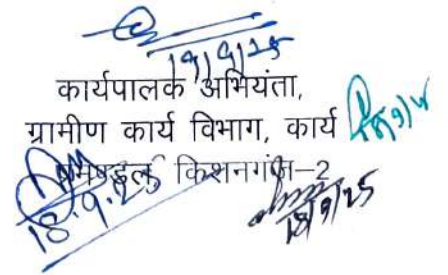 19/9/25
कार्यपालक अभियंता,
ग्रामीण कार्य विभाग, कार्य
प्रमण्डल किशनगंज–2
18.9.25
18/9/25